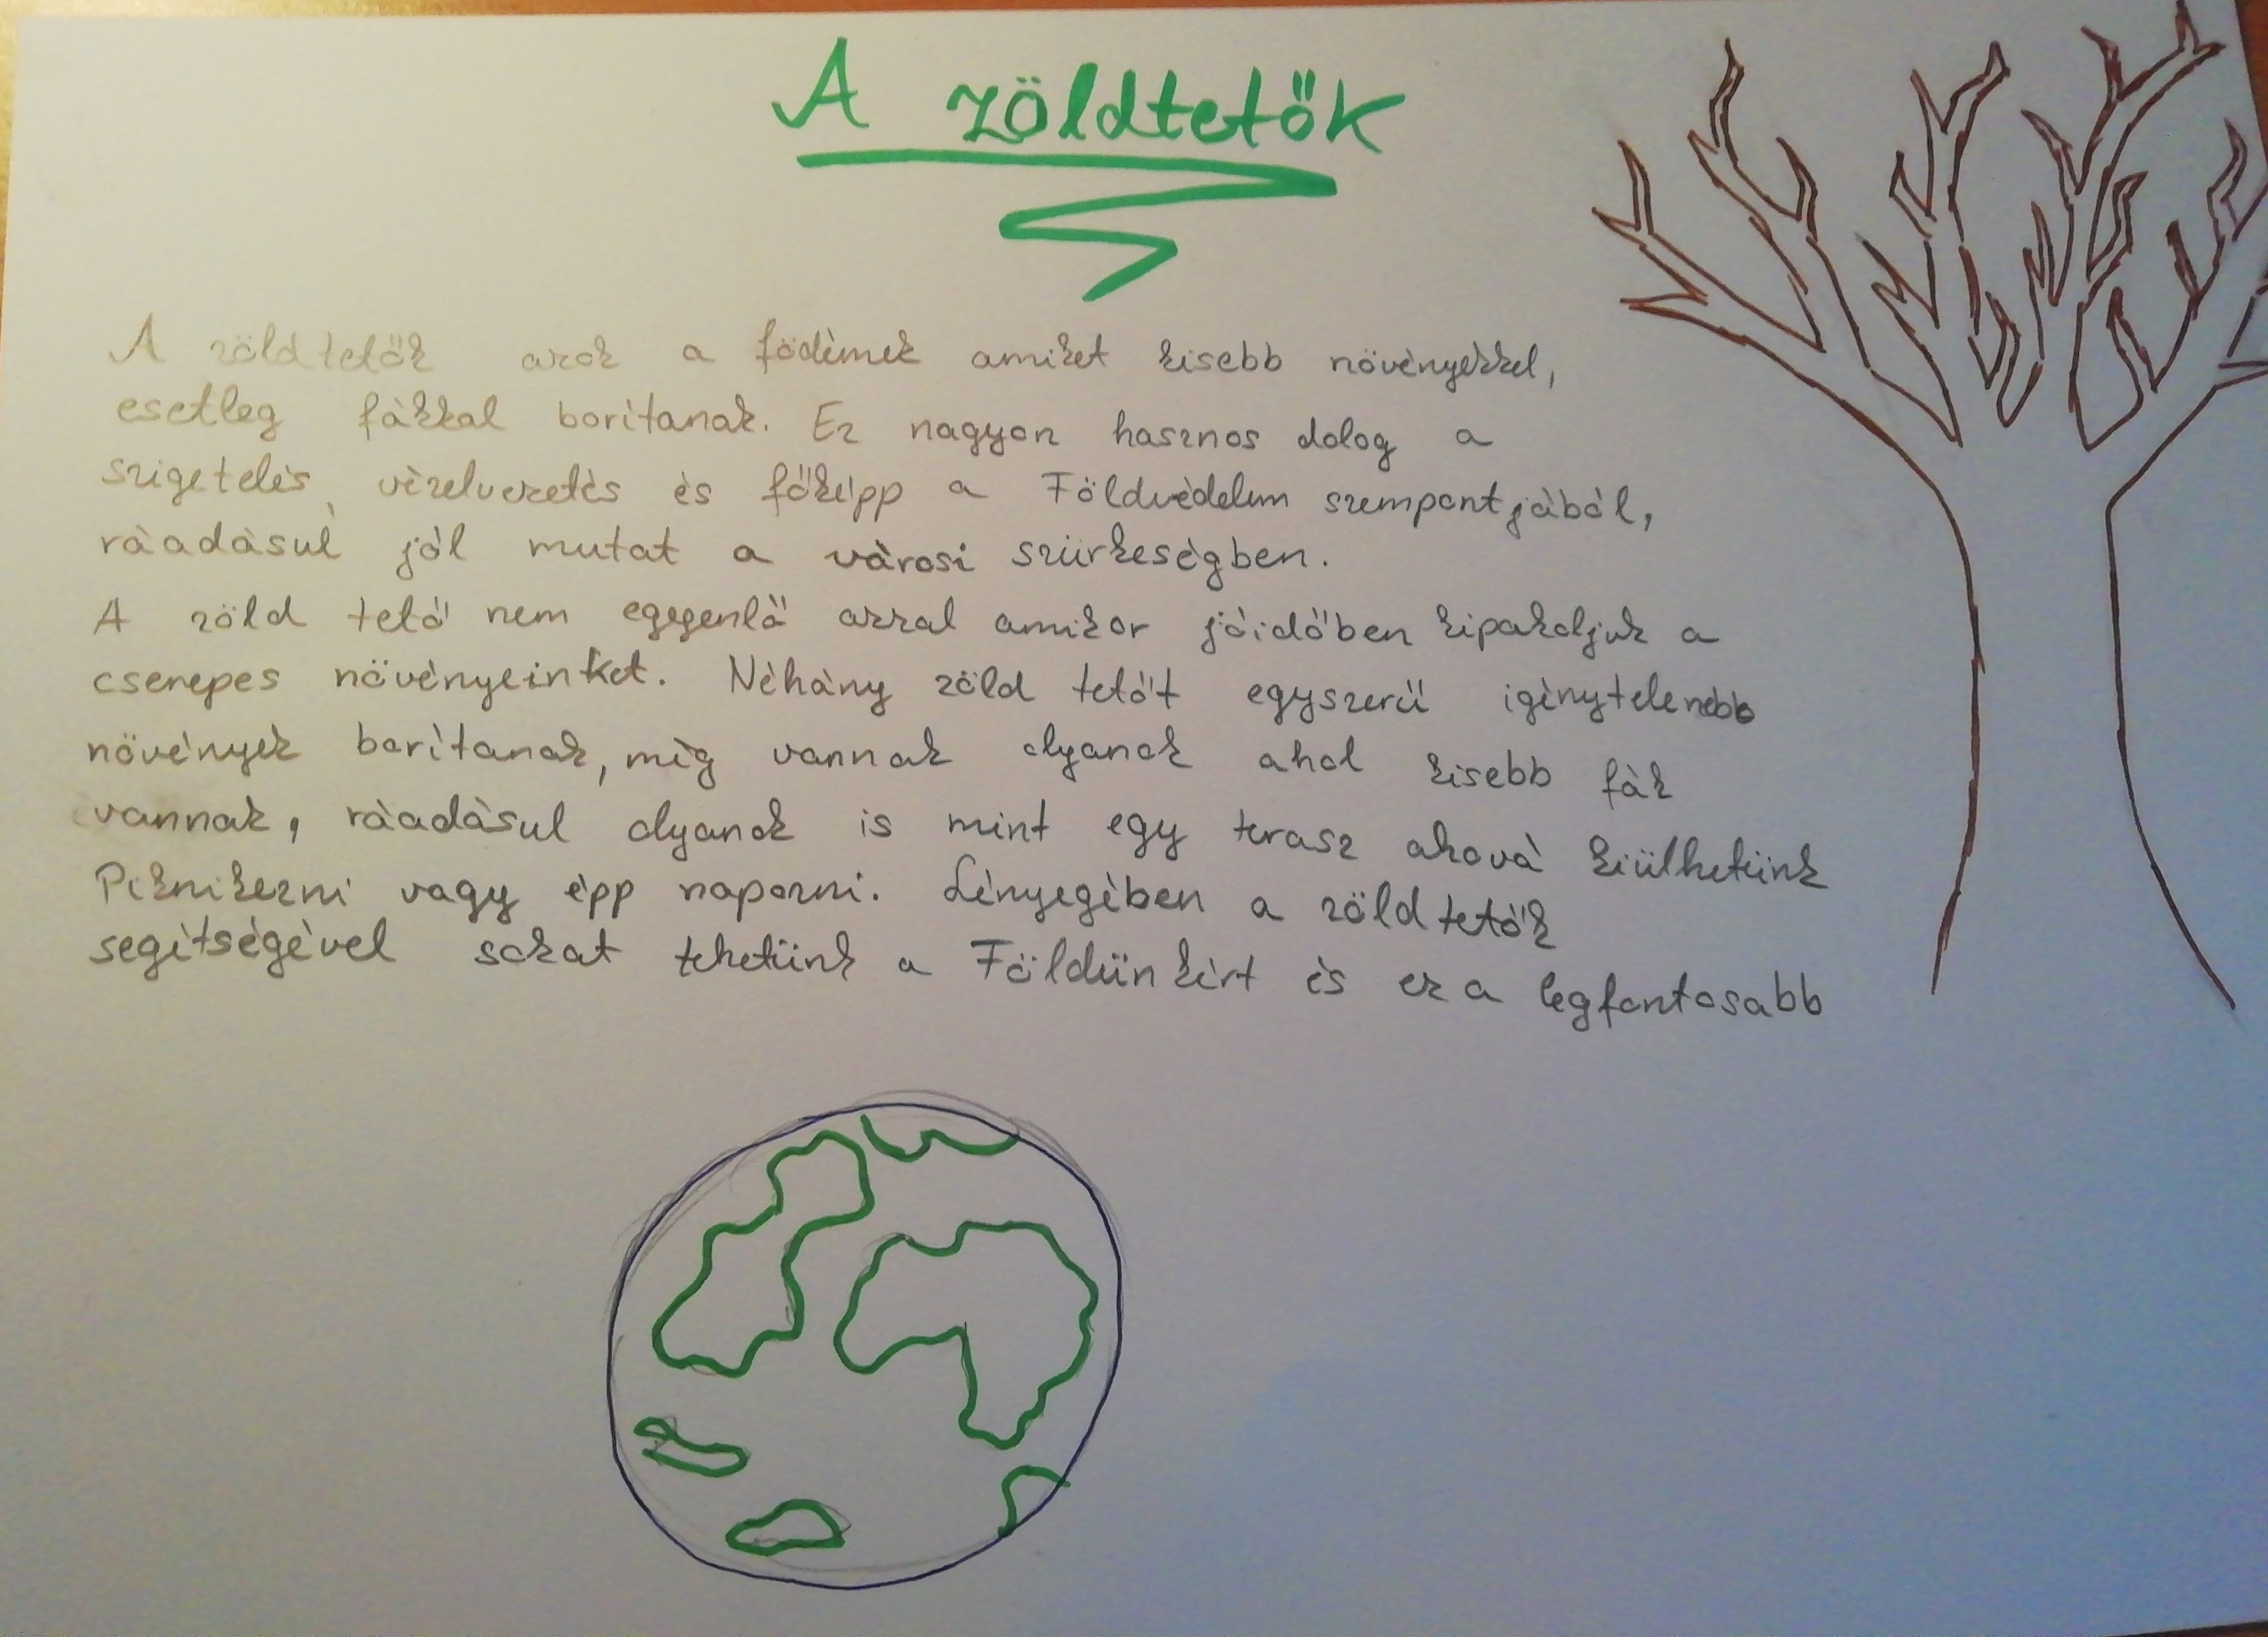 A zöldtetők
A zöldtetők azok a födémek amiket kisebb növényekkel,
esetleg fákkal borítanak. Ez nagyon hasznos dolog a
szigetelés, vízelvezetés és főképp a Földvédelem szempontjából,
ráadásul jól mutat a városi szürkeségben.
A zöld tető nem egyenlő azzal amikor jóidőben kipakoljuk a
cserepes növényeinket. Néhány zöld tetőt egyszerű igénytelenebb
növények borítanak, míg vannak olyanok ahol kisebb fák
vannak, ráadásul olyanok is mint egy terasz ahová kiülhetünk
Piknikezni vagy épp napozni. Lényegében a zöld tetők
segítségével sokat tehetünk a Földünkért és ez a legfontosabb